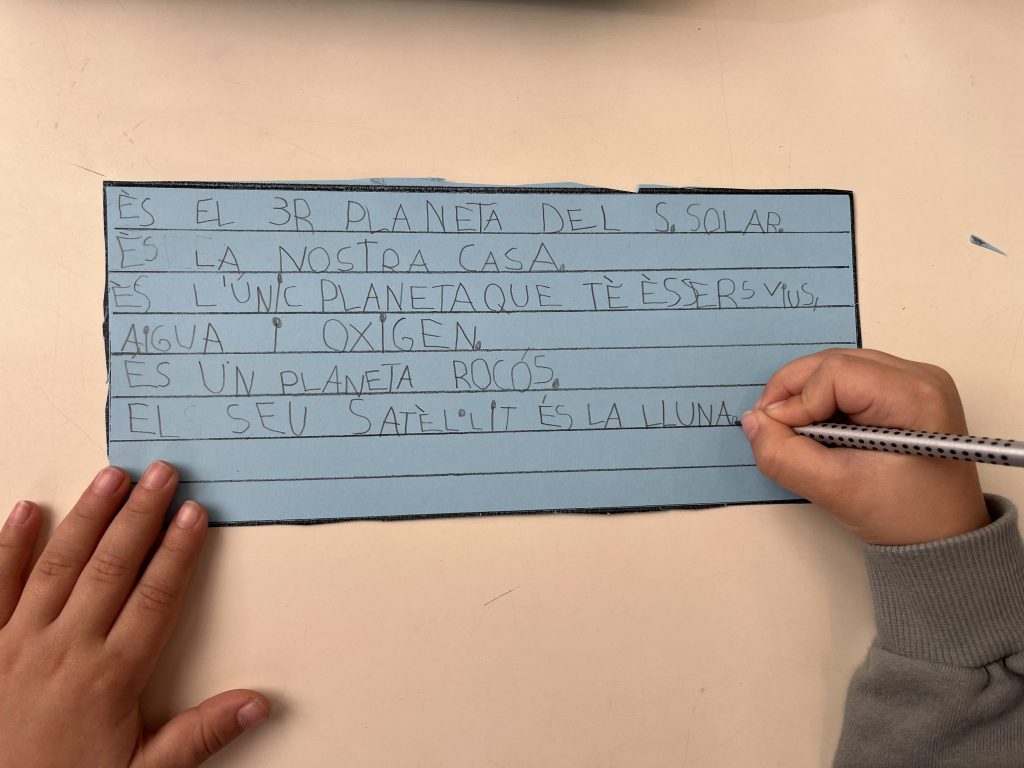 ÈS EL 3R PLANETA DEL S.SOLAR.
ÈS LA NOSTRA CASA.
ÈS L'ÚNIC PLANETA QUE TÈ ÈSSERS VIUS,
AIGUA I OXIGEN.
ÉS UN PLANETA ROCÓS.
EL SEU SATÈL·LIT ÉS LA LLUNA.